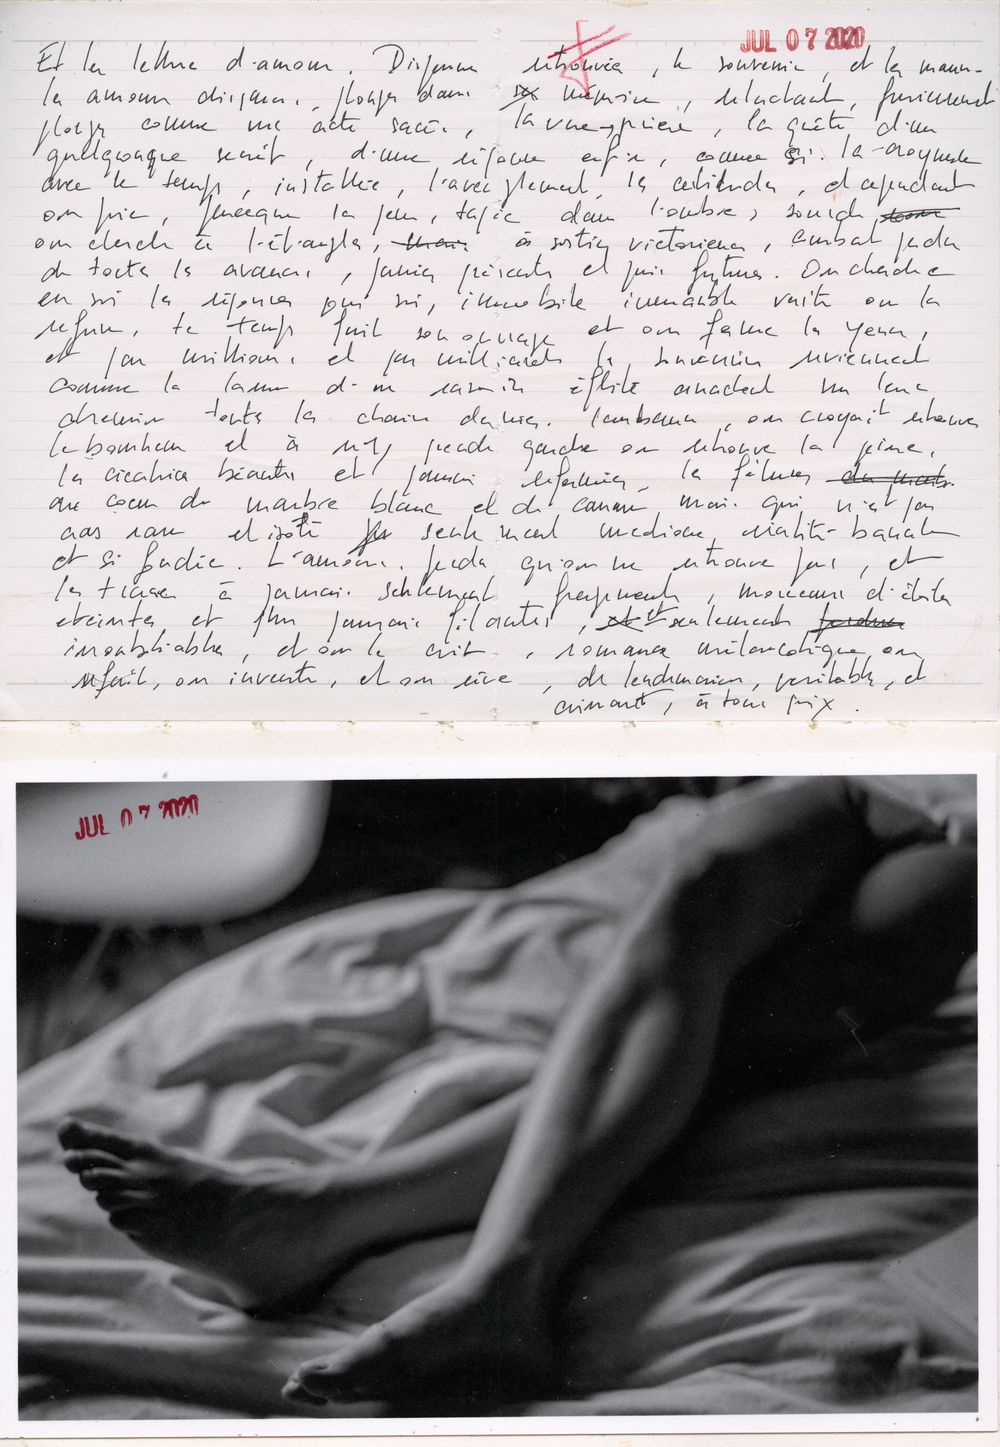 JUL 07 2020
Et les lettres d'amour. Disparues retrouvées, le souvenir, et les
les amours disparus, plonger dans mémoire, relachant, furieusement
plonger comme un acte sacré, la vue, prière, la quête d'un
quelquonque secret, d'une réponse enfin, comme si la croyance
avec le temps, installée, l'aveuglement, les certitudes, et cependant
on prie, presque les yeux, tapie dans l'ombre, sourde
on cherche à l'étrangler, à sortir victorieux, combat perdu
de toutes les avances, jamais présents et puis futures. On cherche
en soi les réponses pour soi, immobile immuable vérité on la
refuse, le temps fait son ouvrage et on ferme les yeux,
et par millions et par milliards les souvenirs reviennent
comme les lames d'un rasoir effilé arrachent un lent
chemin toutes les chairs on croyait retrouver
le bonheur et à n'y prendre garde on retrouve la peine,
la cicatrice béante et jamais refermée, la fêlure
au coeur du marbre blanc et de carrare mais qui n'est pas
cas rare et isolé seulement médiocre réalité banale
et si fardée. L'amour perdu qu'on ne retrouve pas, et
les traces à jamais seulement fragments, morceaux d'étoiles
éteintes et plus jamais filantes, et seulement
inoubliables, et on le crit, romance mélancolique, on
refait, on invente, et on rêve, de lendemains, veritable, et
, à tout prix.
JUL 07 2020